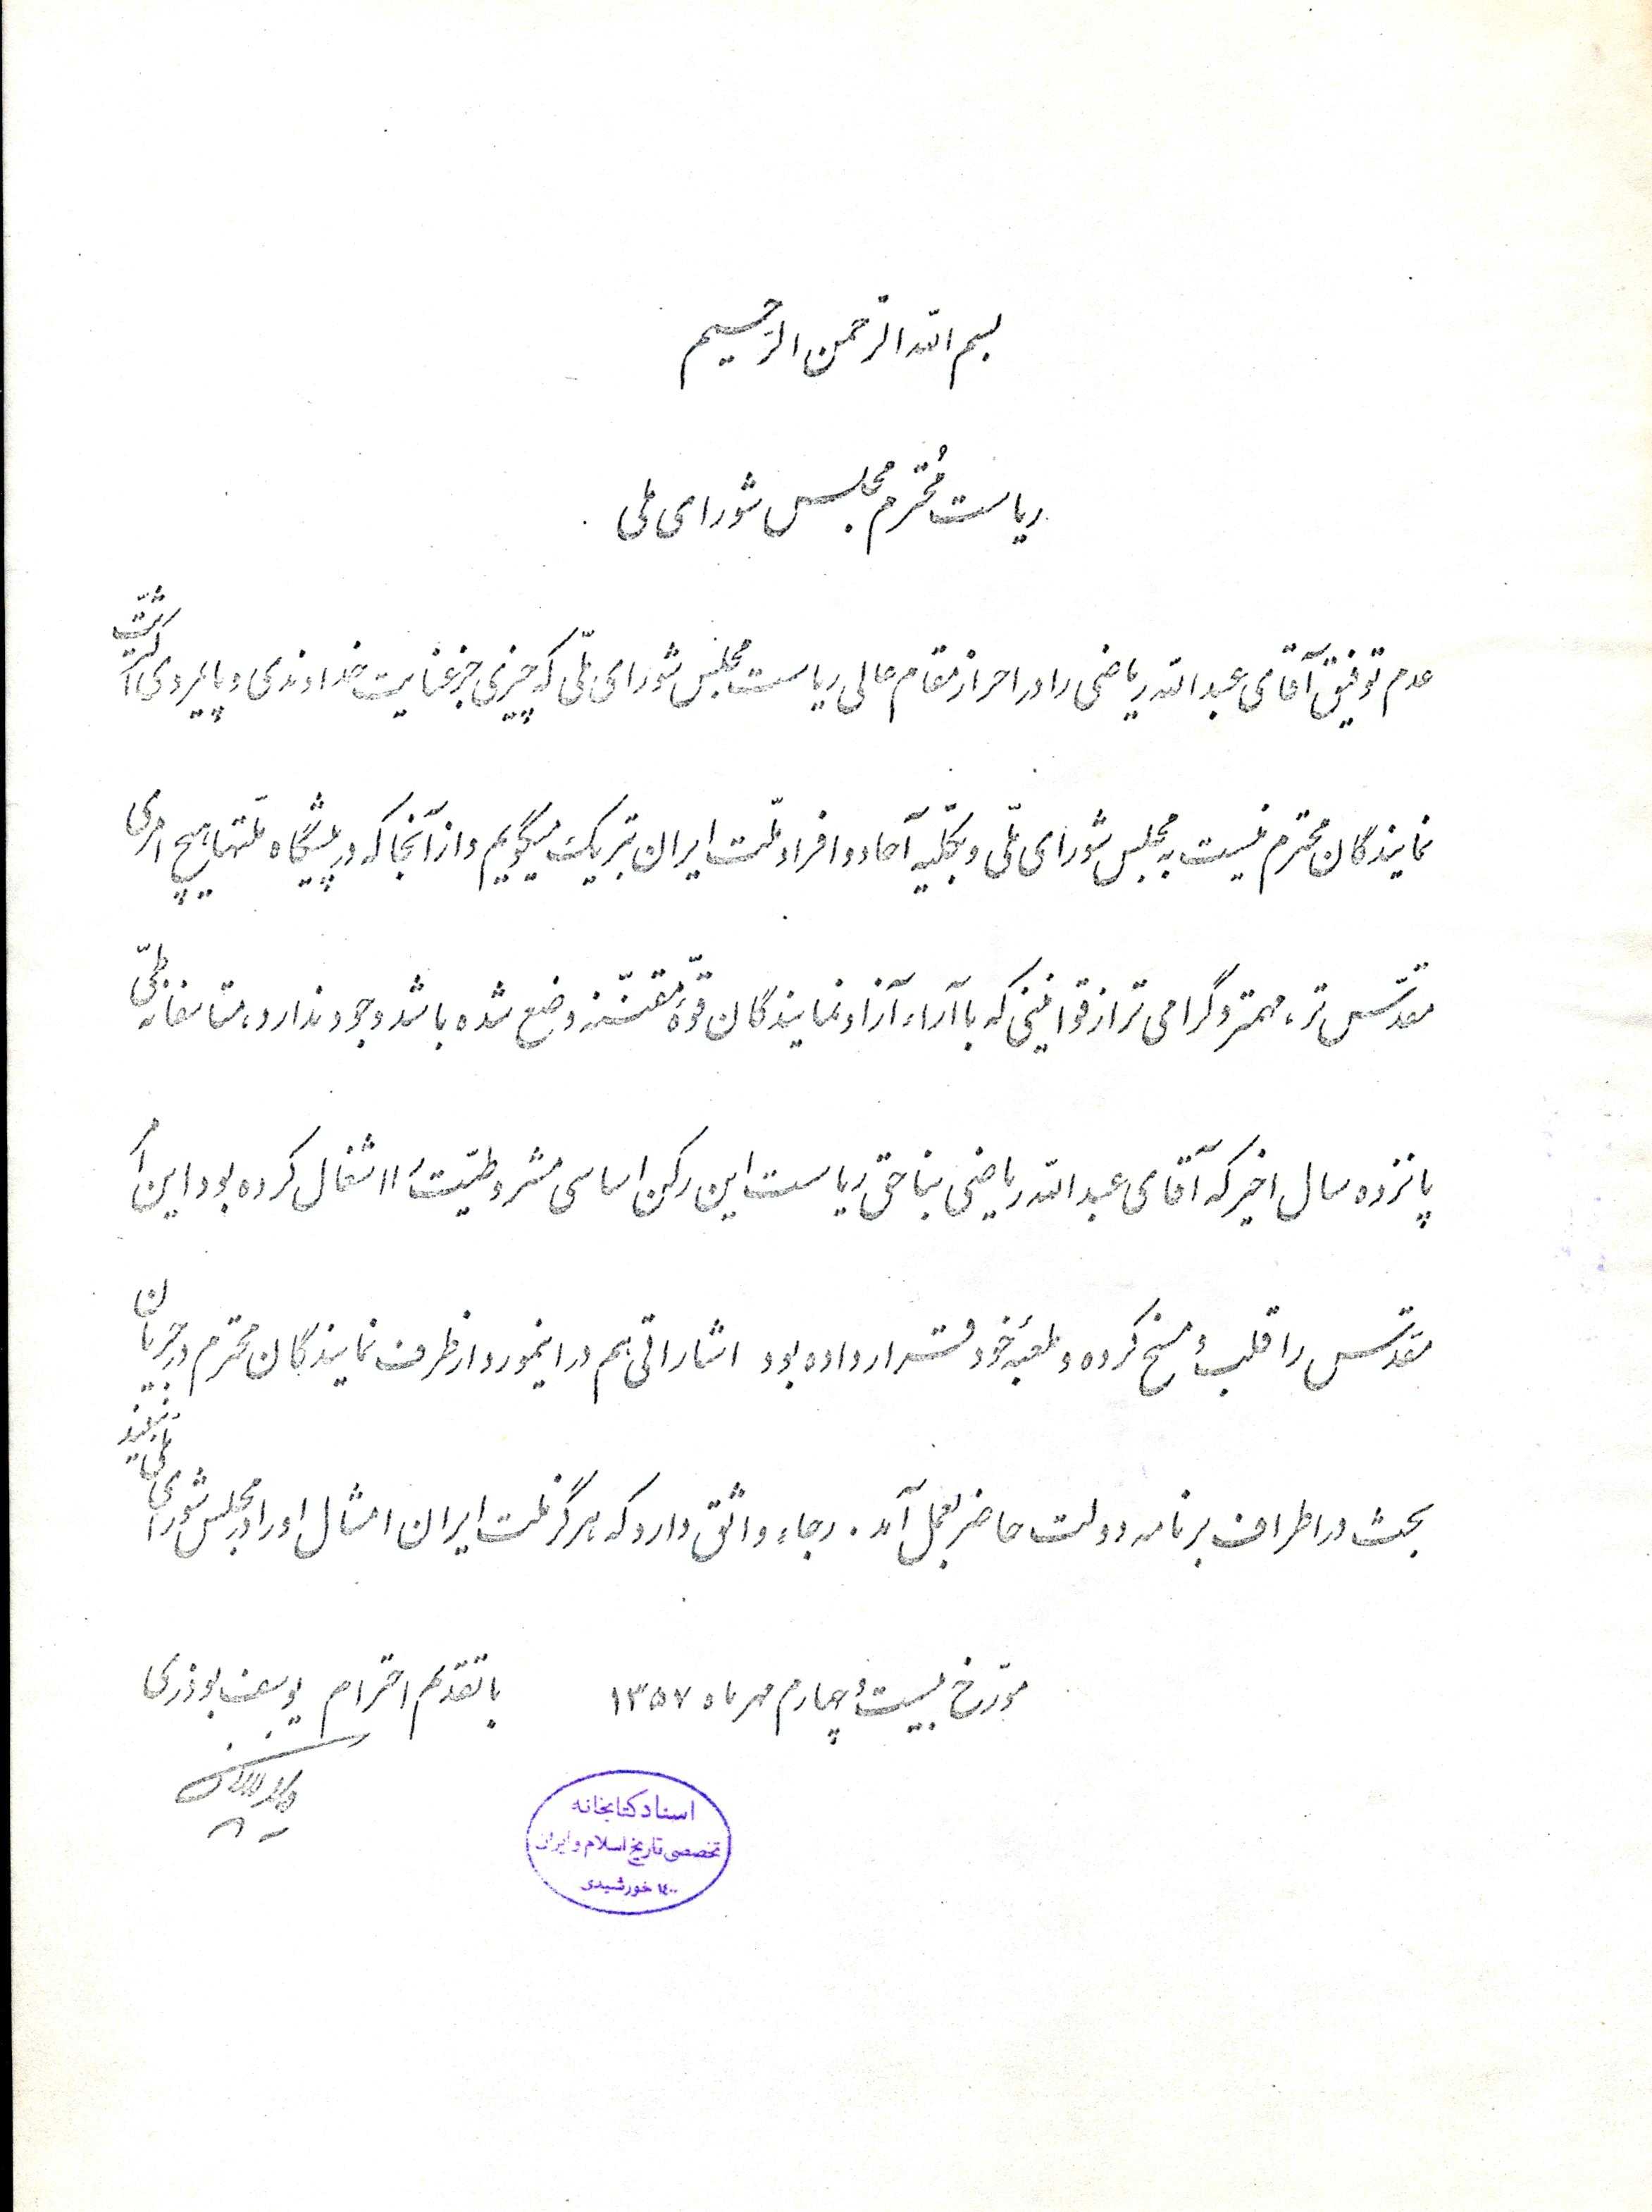 بسم الله الرّحمن الرّحیم
ریاست مُحترم مجلس شورای ملی
عدم توفیق آقای عبدالله ریاضی را در احراز مقام عالی ریاست مجلس شورای ملّی که چیزی جز عنایت خداوندی و پایمردی اکثریّت
نمایندگان محترم نیست به مجلس شورای ملّی و بکلّیه آحاد و افراد ملّت ایران تبریک میگویم و از آنجا که در پیشگاه ملّتها هیچ امری
مقدّس تر، مهمتر و گرامی تر از قوانینی که با آراء آزاد نمایندگان قوّهٔ مقنّنه وضع شده باشد وجود ندارد، متاسفانه طیّ
پانزده سال اخیر که آقای عبدالله ریاضی بناحق ریاست این رکن اساسی مشروطیّت را اشغال کرده بود این امر
مقدّس را قلب و مسخ کرده و ملعبهٔ خود قرار داده بود اشاراتی هم در اینمورد از طرف نمایندگان محترم در جریان
بحث در اطراف برنامه دولت حاضر بعمل آمد. رجاء واثق دارد که هرگز ملت ایران امثال او را در مجلس شورای ملّی نبیند
با تقدیم احترام یوسف بوذری
مورّخ بیست و چهارم مهرماه ۱۳۵۷
اسناد کتابخانه
تخصصی تاریخ اسلام و ایران
۱۴۰۰ خورشیدی